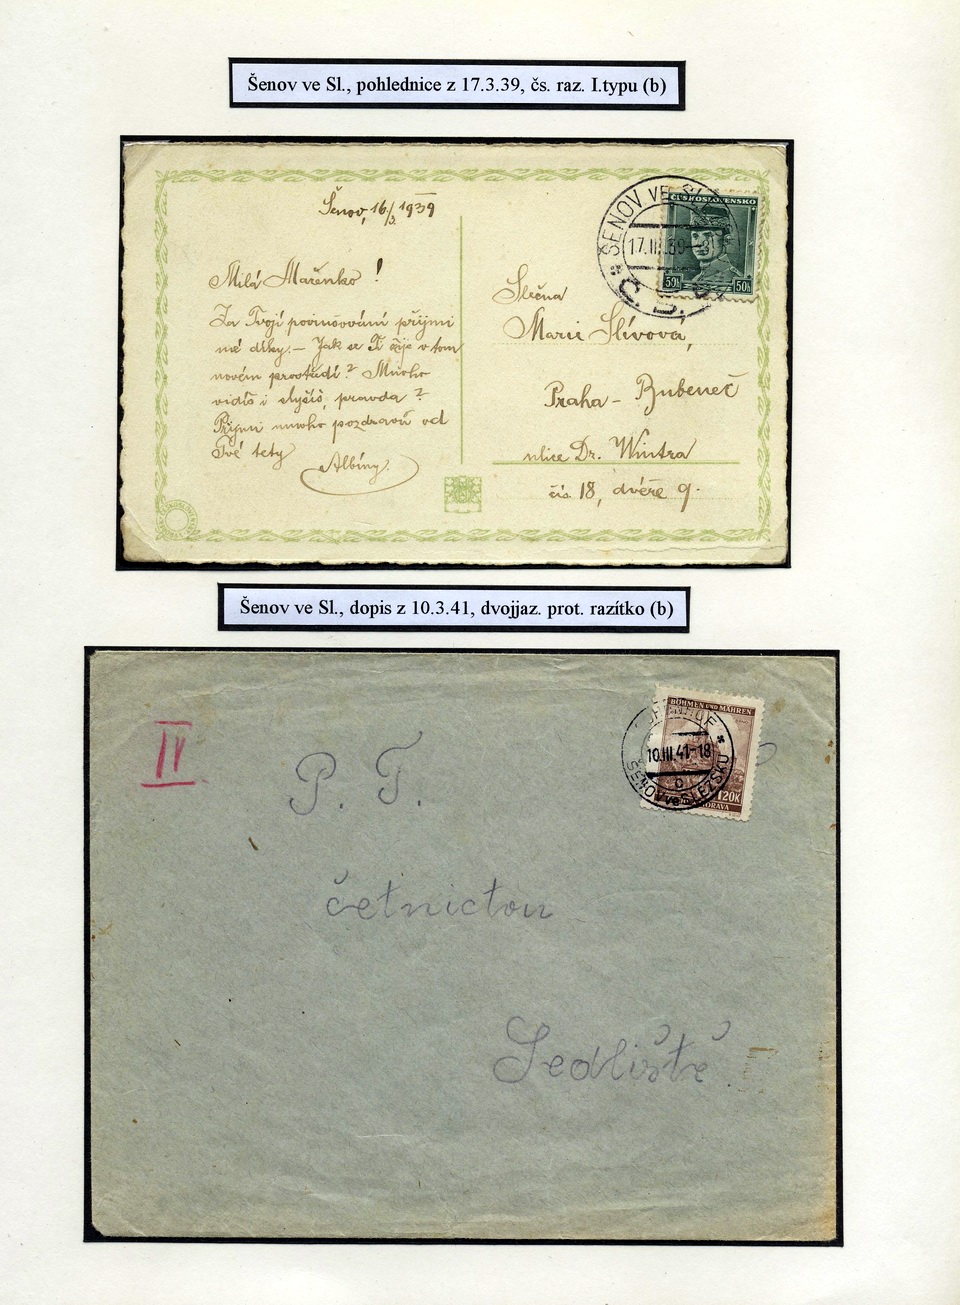 Šenov ve Sl., pohlednice z 17.3.39, čs. raz. I.typu (b)
Šenov, 16/3. 1939
Milá Mařenko!
Za Tvojí povinšování přijmi
mé díky. – Jak se Ti žije v tom
novém prostředí? Mnoho
vidíš i slyšíš, pravda?
Přijmi mnoho pozdravů od
Tvé tety
Albíny.
ŠENOV VE SL
17.III.39-8
Č.S.
ČESKOSLOVENSKO
50h 50h
Slečna
Marie Slívová,
Praha – Bubeneč
ulice Dr. Wintra
čís. 18, dvéře 9.
Šenov ve Sl., dopis z 10.3.41, dvojjaz. prot. razítko (b)
IV.
BÖHMEN UND MÄHREN
10.III.41-18
b
ŠENOV ve SLEZSKU
1·20K
P. T.
četnictou
Sedliště